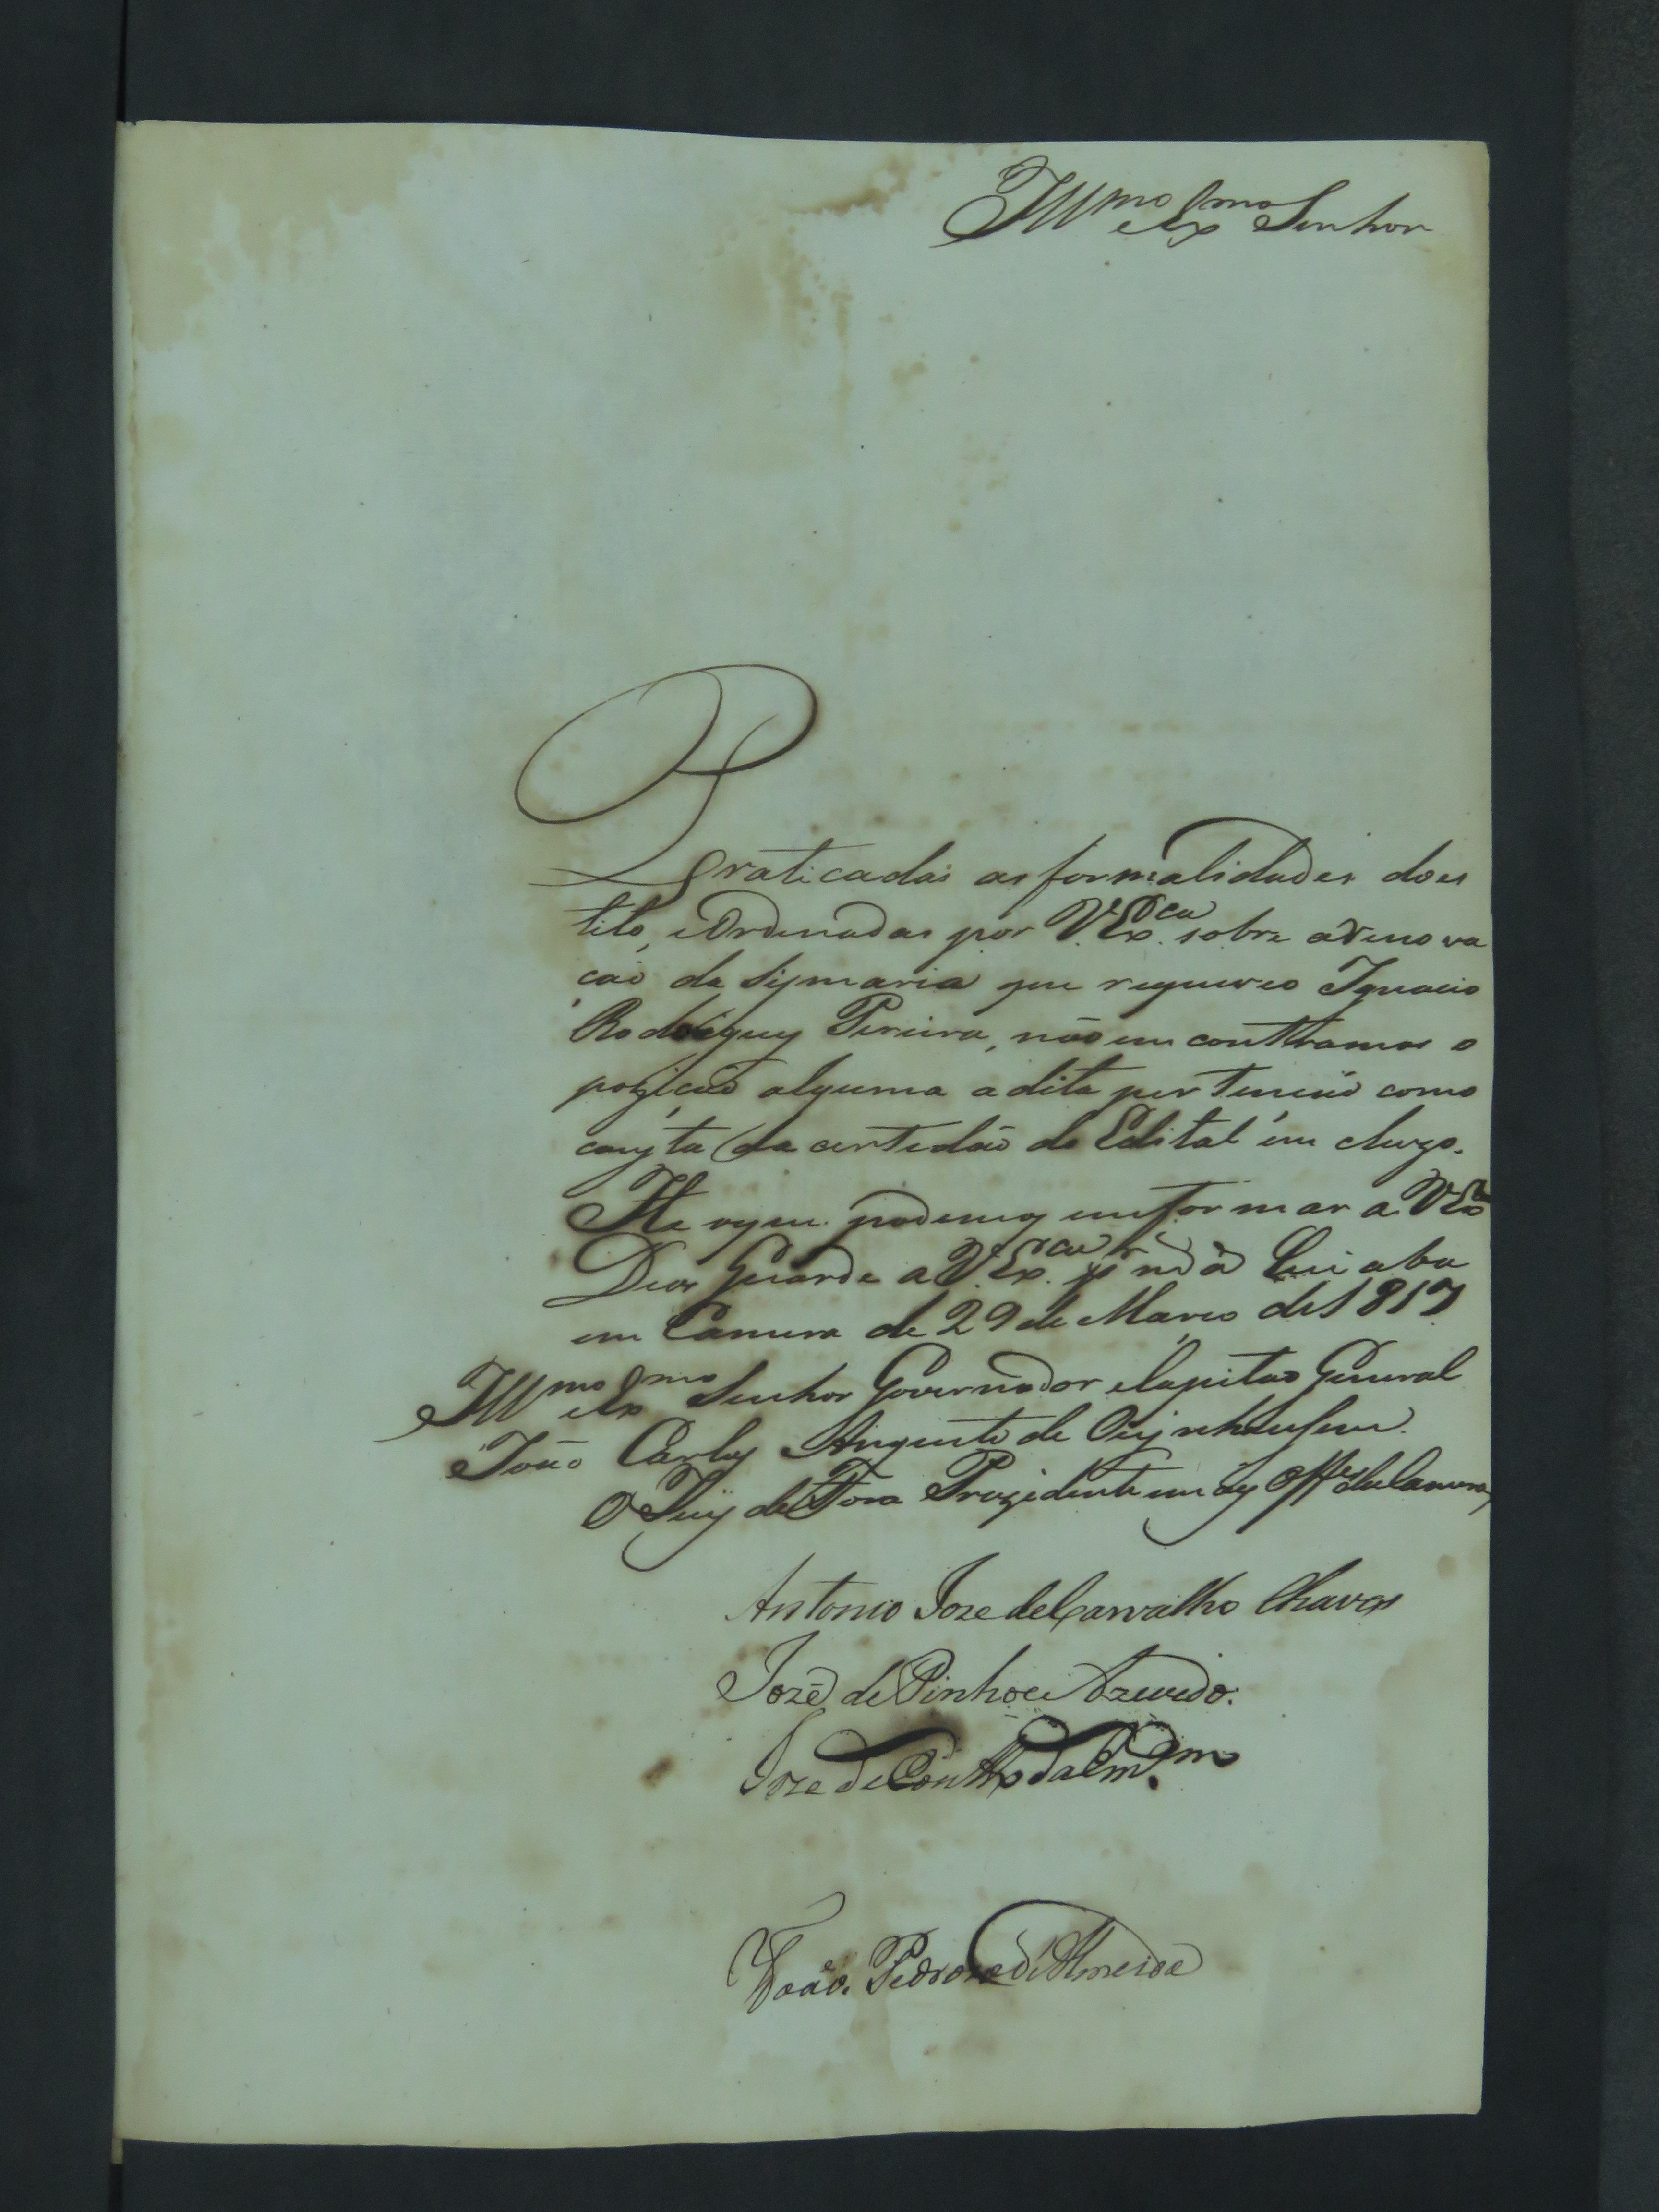 Ill.mo e Ex.mo Senhor
Praticadas as formalidades does
tilo, eOrdenadas por V. Ex.ca sobre arenova
caó de Sijmaria que requereo Ignacio
Rodriguez Pereira, não em conttramos o
pozicaó alguma adita pertencaó como
conzta da certedaó do Edital ém cluzo.
He oque podemoz emformar a V Ex.ca
Deos Guarde a V. Ex.ca Cuiaba
em Camera de 29 de Março de 1817
Ill.mo e Ex.mo Senhor Governador eCapitaõ General
João Carlos Augusto de Oeynhausem.
O Juiz de Fora Prezidente em aiz Off.es da Camera
Antonio Joze de Carvalho Chaves
Jozé de Pinho e Azevedo.
Joze de Couttо da Em.
João Pedrozo de Almeida